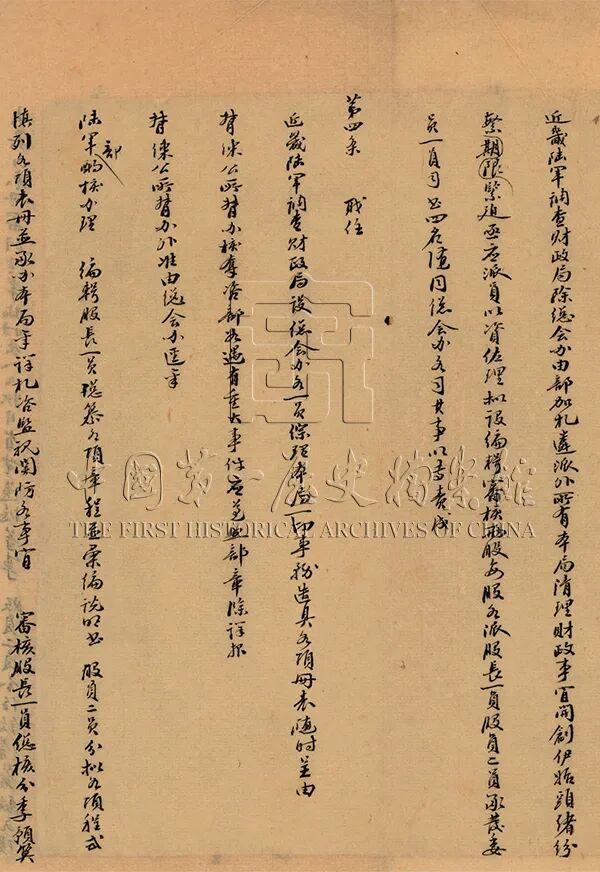 近畿陸軍調查財政局除總会办由部加札遴派外所有本局清理財政事宜開創伊始頭緒紛
繁期限緊迫亟应派員以資佐理拟設編輯審核兩股每股各派股長一員股員二員承發委
員一員司书四名隨同總会办各司其事以專責成
第四条 職任
近畿陸軍調查財政局設總会办各一員綜理本局一切事務造具各項冊表隨時呈由
督練公所督办核奪咨部如遇有重大事件应遵照部章除詳报
督練公所督办外准由總会办逕呈
陸軍部酌核办理 編輯股長一員總纂各項章程並彙編説明书 股員二員分拟各項程式
填列各項表冊並承办本局呈詳札咨監視関防各事宜 審核股長一員總核分季預算
中国第一歷史檔案館
THE FIRST HISTORICAL ARCHIVES OF CHINA